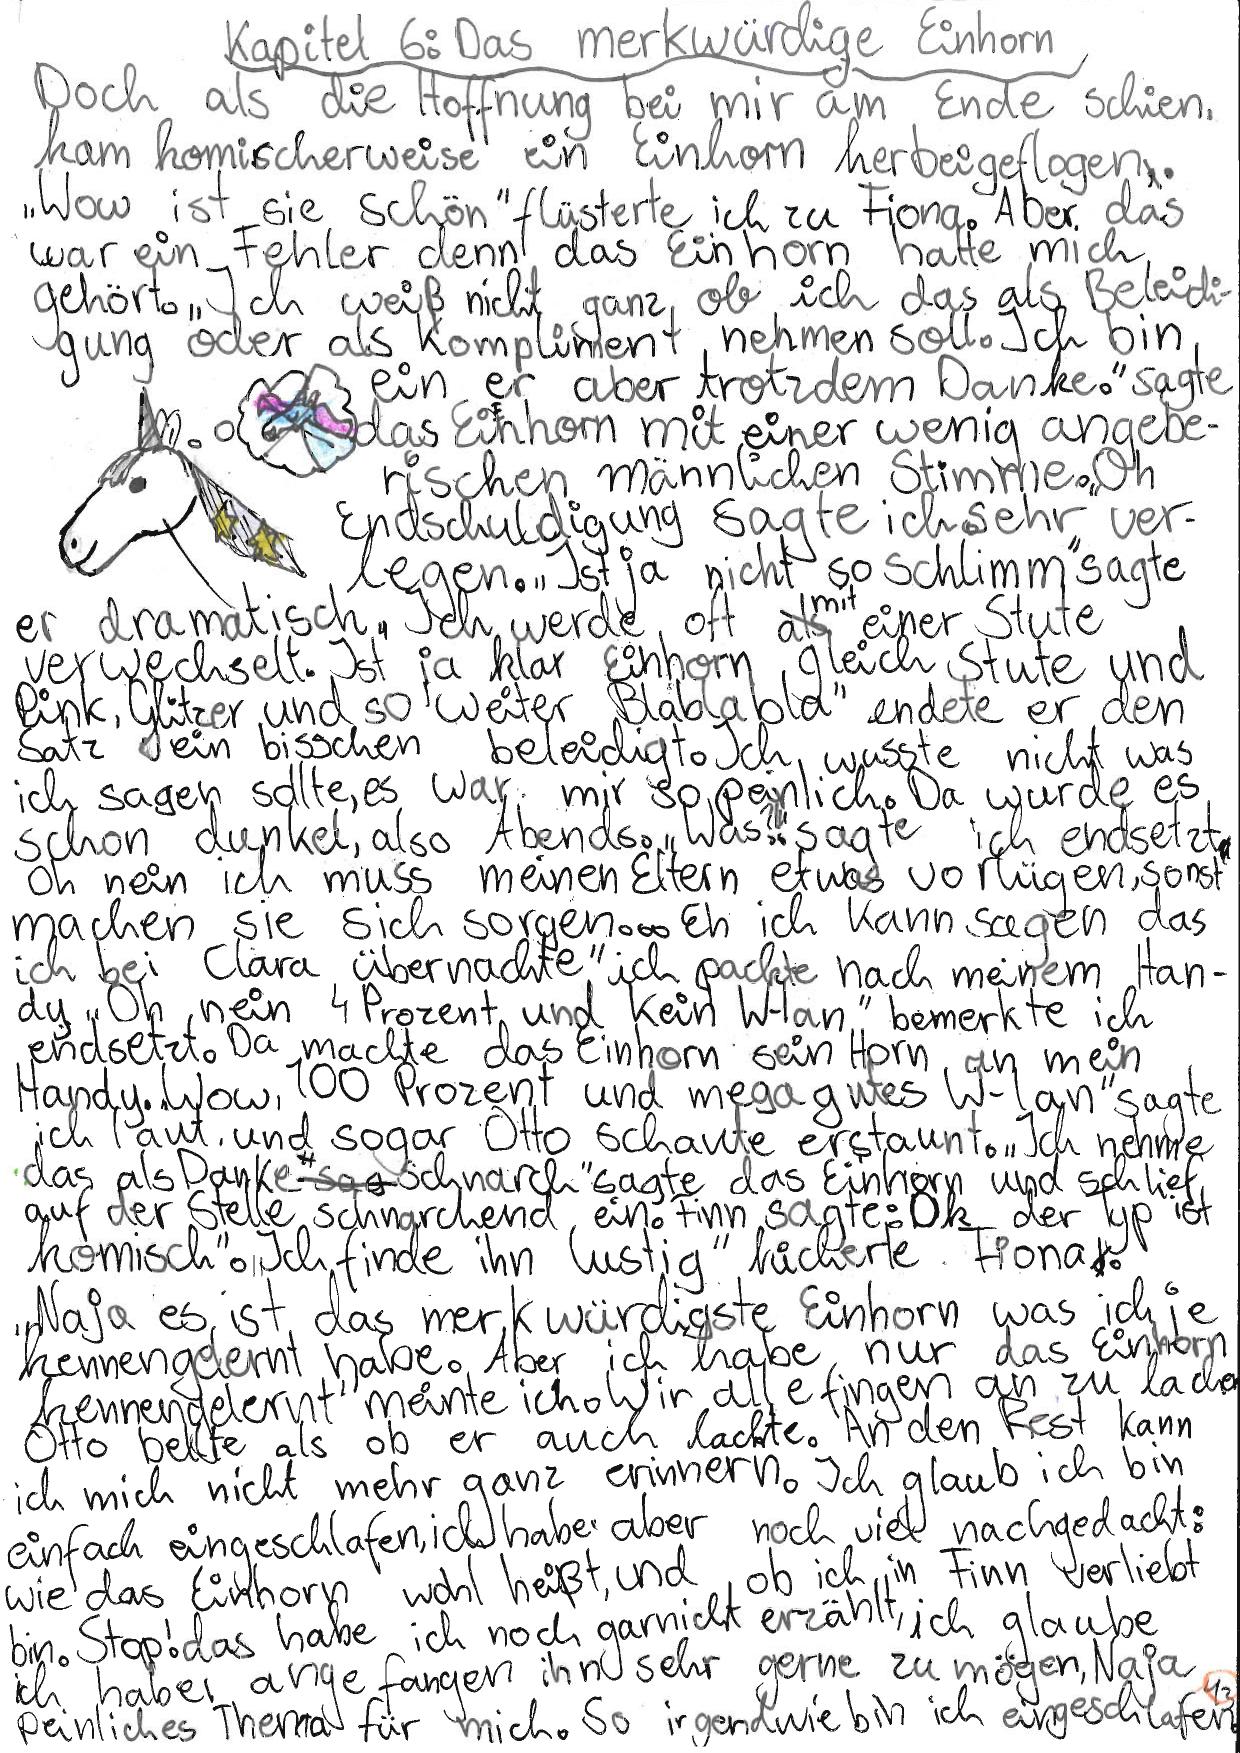 Kapitel 6: Das merkwürdige Einhorn
Doch als die Hoffnung bei mir am Ende schien.
kam komischerweise ein Einhorn herbeigeflogen.
„Wow ist sie schön" flüsterte ich zu Fiona. Aber das
war ein Fehler denn das Einhorn hatte mich
gehört. „Ich weiß nicht ganz ob ich das als Beleidi-
gung oder als Kompliment nehmen soll. Ich bin
ein er aber trotzdem Danke." sagte
das Einhorn mit einer wenig angebe-
rischen männlichen Stimme. „Oh
Endschuldigung sagte ich sehr ver-
legen. „Ist ja nicht so schlimm" sagte
er dramatisch „Ich werde oft mit einer Stute
verwechselt. Ist ja klar Einhorn gleich Stute und
Pink, Glitzer und so weiter Blablabla" endete er den
Satz ein bisschen beleidigt. Ich wusste nicht was
ich sagen sollte, es war mir so peinlich. Da wurde es
schon dunkel, also Abends. „Was?!" sagte ich endsetzt
Oh nein ich muss meinen Eltern etwas vorlügen, sonst
machen sie sich sorgen... Eh ich kann sagen das
ich bei Clara übernachte" ich packte nach meinem Han-
dy „Oh nein 4 Prozent und kein W-lan" bemerkte ich
endsetzt. Da machte das Einhorn sein Horn an mein
Handy. „Wow, 100 Prozent und mega gutes W-lan" sagte
ich laut, und sogar Otto schaute erstaunt. „Ich nehme
das als Danke *schnarch" sagte das Einhorn und schlief
auf der Stelle schnarchend ein. Finn sagte: Ok der Typ ist
komisch". „Ich finde ihn lustig" kicherte Fiona.
„Naja es ist das merkwürdigste Einhorn was ich je
kennengelernt habe. Aber ich habe nur das Einhorn
kennengelernt" meinte ich. Wir alle fingen an zu lachen
Otto bellte als ob er auch lachte. An den Rest kann
ich mich nicht mehr ganz erinnern. Ich glaub ich bin
einfach eingeschlafen, ich habe aber noch viel nachgedacht:
wie das Einhorn wohl heißt, und ob ich in Finn verliebt
bin. Stop! das habe ich noch garnicht erzählt, ich glaube
ich habe angefangen ihn sehr gerne zu mögen, Naja
peinliches Thema für mich. So irgendwie bin ich eingeschlafen